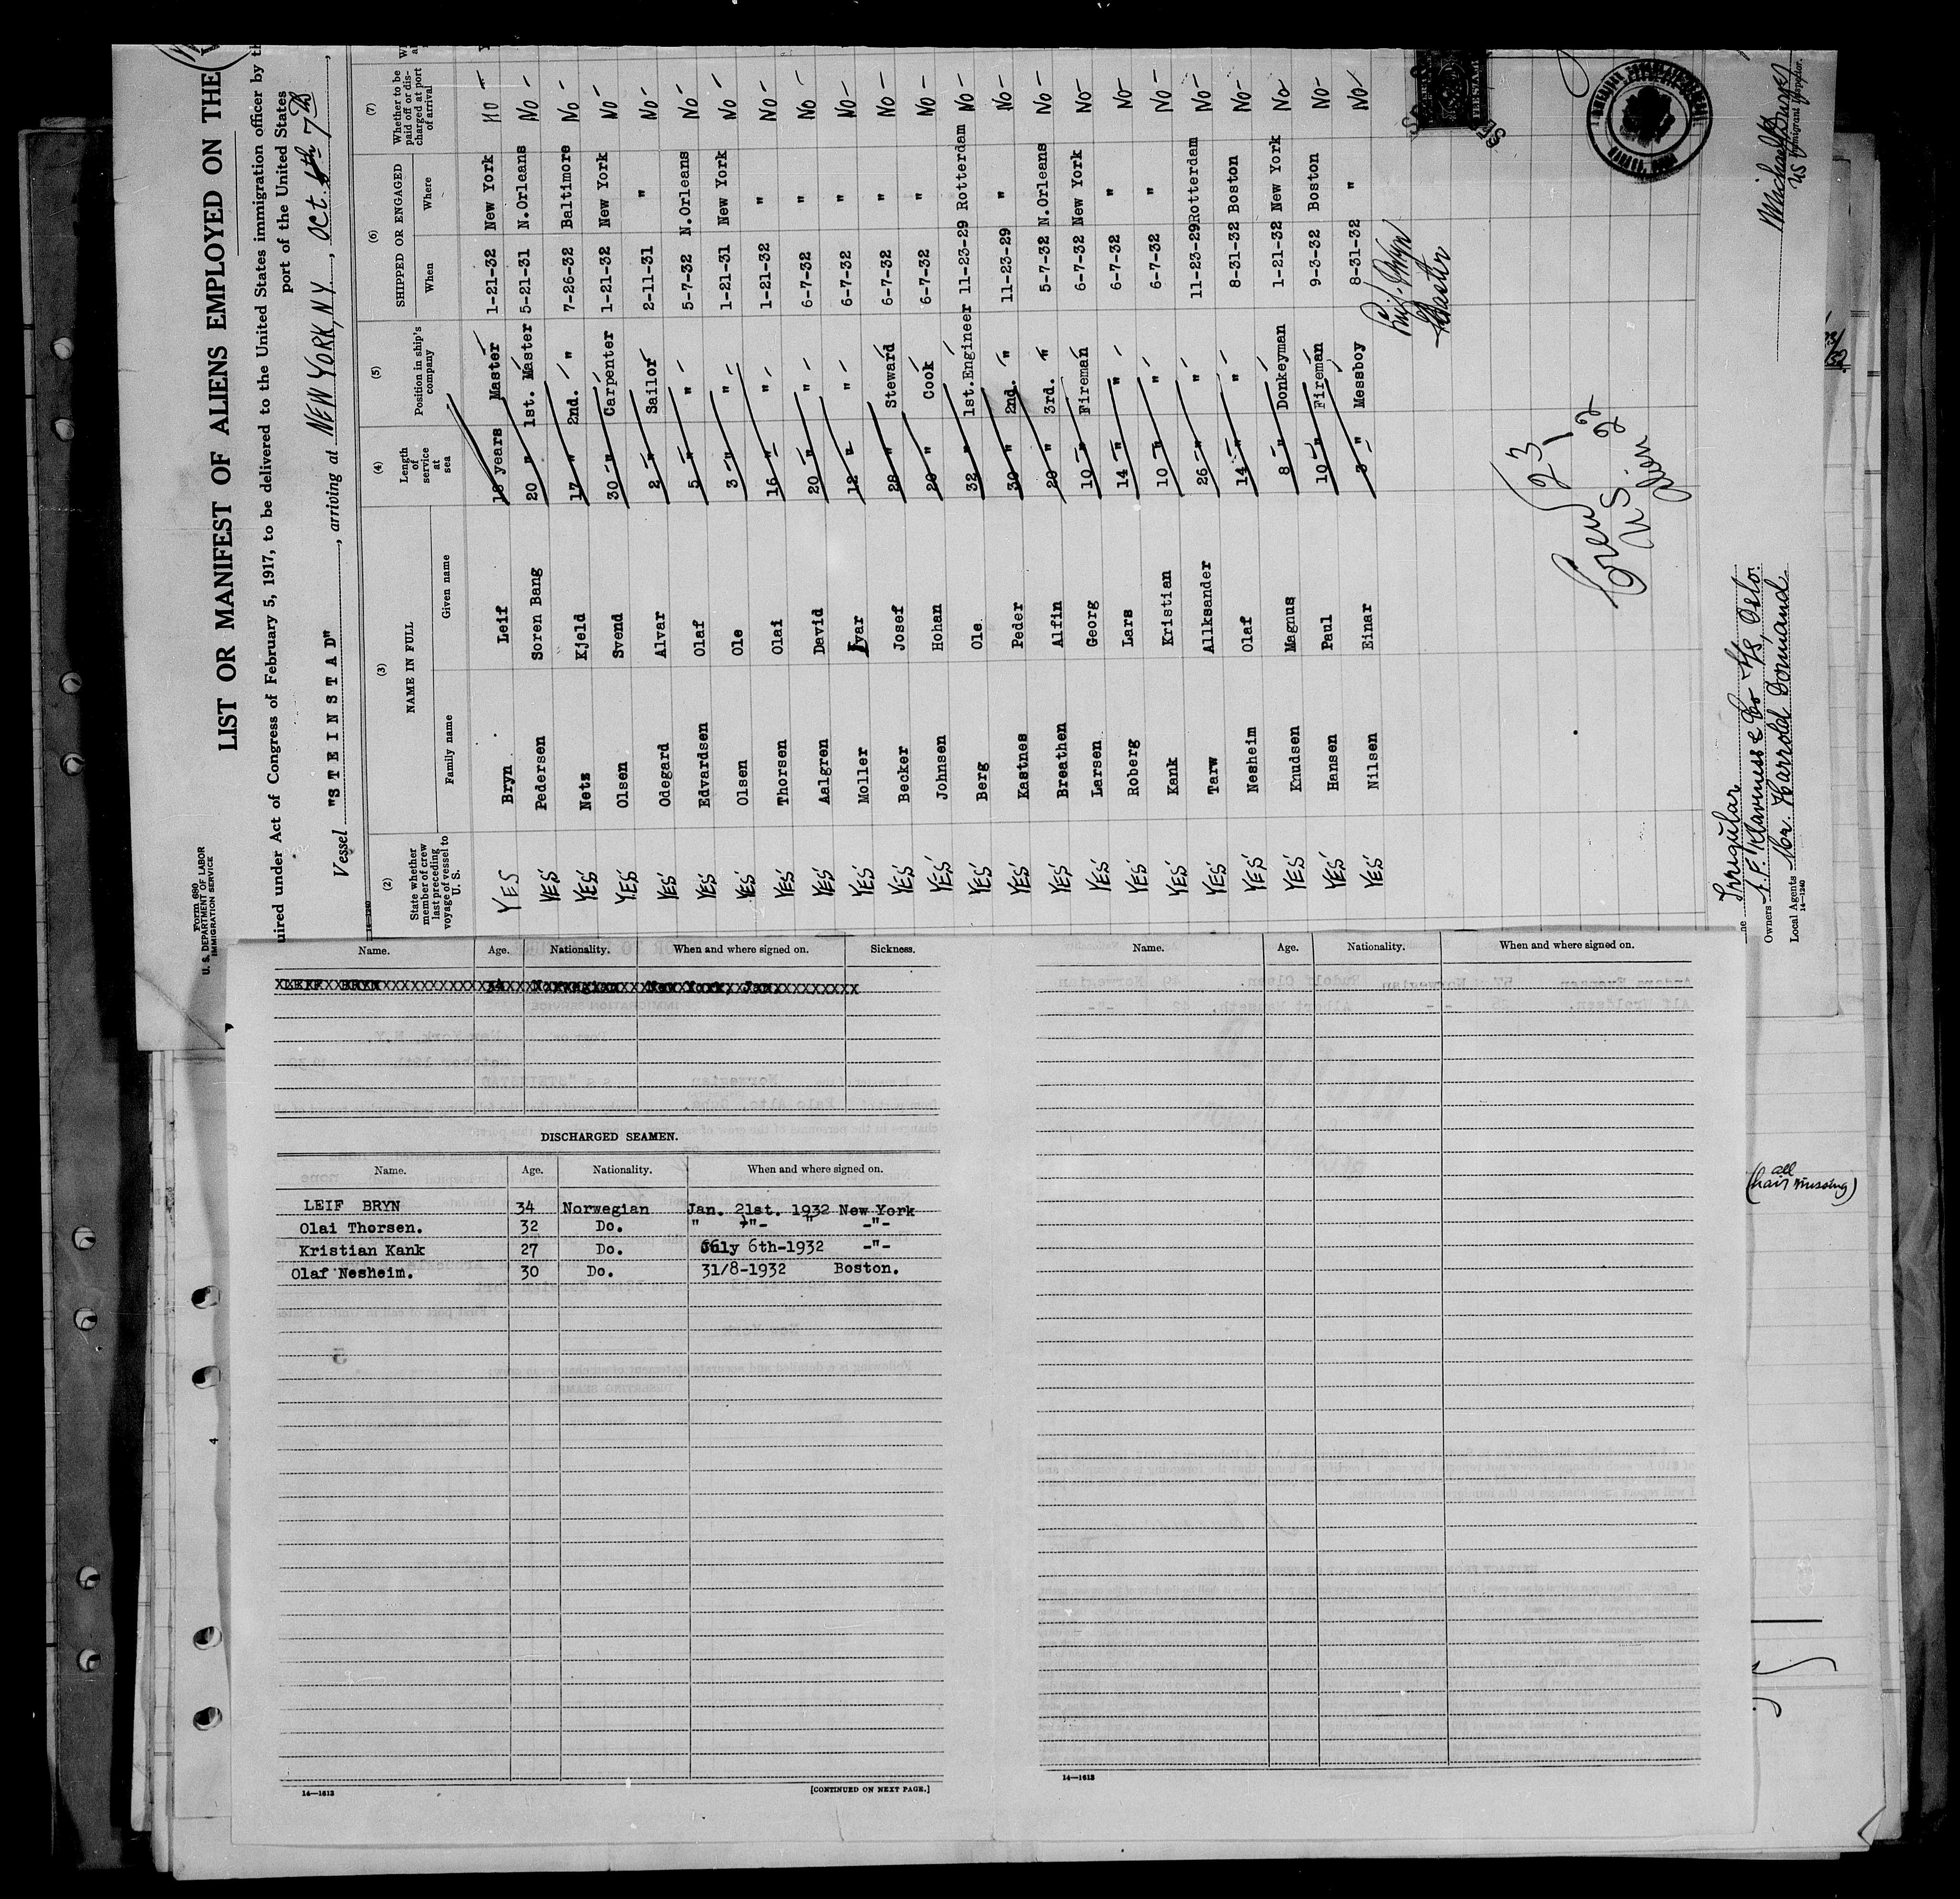 Form 680
U. S. DEPARTMENT OF LABOR
IMMIGRATION SERVICE
LIST OR MANIFEST OF ALIENS EMPLOYED ON THE
uired under Act of Congress of February 5, 1917, to be delivered to the United States immigration officer by th
port of the United States
Vessel "STEINSTAD", arriving at NEW YORK, NY., Oct. 7th,
14-1240
(2) (3) (4) (5) (6) (7)
State whether member of crew last preceding voyage of vessel to U. S. NAME IN FULL Length of service at sea Position in ship's company SHIPPED OR ENGAGED Whether to be paid off or discharged at port of arrival
Family name Given name When Where
YES Bryn Leif 18 years Master 1-21-32 New York No -
YES Pedersen Soren Bang 20 " 1st. Master 5-21-31 N.Orleans No -
YES Netz Kjeld 17 " 2nd. " 7-26-32 Baltimore No -
YES Olsen Svend 30 " Carpenter 1-21-32 New York No -
YES Odegard Alvar 2 " Sailor 2-11-31 " No -
YES Edvardsen Olaf 5 " " 5-7-32 N.Orleans No -
YES Olsen Ole 3 " " 1-21-31 New York No -
YES Thorsen Olai 16 " " 1-21-32 " No -
YES Aalgren David 20 " " 6-7-32 " No -
YES Moller yar 12 " " 6-7-32 " No -
YES Becker Josef 28 " Steward 6-7-32 " No -
YES Johnsen Hohan 20 " Cook 6-7-32 " No -
YES Berg Ole 32 " 1st.Engineer 11-23-29 Rotterdam No -
YES Kastnes Peder 30 " 2nd. " 11-23-29 " No -
YES Breathen Alfin 20 " 3rd. " 5-7-32 N.Orleans No -
YES Larsen Georg 10 " Fireman 6-7-32 New York No -
YES Roberg Lars 14 " " 6-7-32 " No -
YES Kank Kristian 10 " " 6-7-32 " No -
YES Tarw Allksander 26 " " 11-23-29 Rotterdam No -
YES Nesheim Olaf 14 " " 8-31-32 Boston No -
YES Knudsen Magnus 8 " Donkeyman 1-21-32 New York No -
YES Hansen Paul 10 " Fireman 9-3-32 Boston No -
YES Nilsen Einar 3 " Messboy 8-31-32 " No -
Leif Bryn
Master
Crew 23-
U.S. 22
Alien
Irregular
Owners A.F. Klaveness & Co A/S, Oslo.
Local Agents Mr. Harrold Dormand
14-1240
Immigrant Inspector.
Name. Age. Nationality. When and where signed on. Sickness.
LEIF BRYN 34 Norwegian New York, Jan.
DISCHARGED SEAMEN.
Name. Age. Nationality. When and where signed on.
LEIF BRYN 34 Norwegian Jan. 21st. 1932 New York
Olai Thorsen. 32 Do. " -"- " -"-
Kristian Kank 27 Do. July 6th-1932 -"-
Olaf Nesheim. 30 Do. 31/8-1932 Boston.
14—1613 [CONTINUED ON NEXT PAGE.]
Name. Age. Nationality. When and where signed on.
14—1613
4
(all
hair missing)